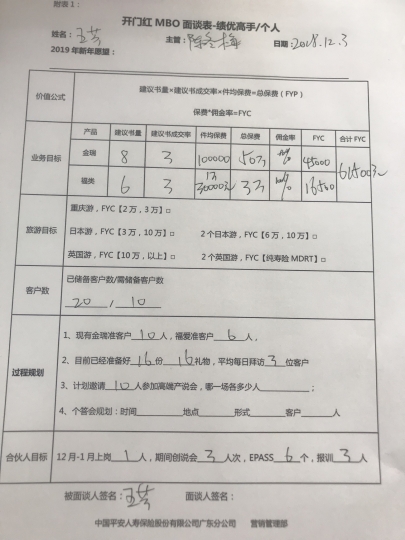 附表1:
开门红 MBO 面谈表-绩优高手/个人
姓名: 王芸 主管: 陈冬梅 日期: 2018.12.3
2019年新年愿望:
价值公式 建议书量×建议书成交率×件均保费=总保费(FYP)
保费*佣金率=FYC
业务目标 产品 建议书量 建议书成交率 件均保费 总保费 佣金率 FYC 合计FYC
金瑞 8 3 100000 50万 45000
福类 6 3 30000元 3万 16500
旅游目标 重庆游,FYC【2万,3万】□
日本游,FYC【3万,10万】□ 2个日本游,FYC【6万,10万】□
英国游,FYC【10万,以上】□ 2个英国游,FYC【纯寿险 MDRT】□
客户数 已储备客户数/需储备客户数
20 / 10
过程规划 1、现有金瑞准客户 10 人,福爱准客户 6 人,
2、目前已经准备好 16 份 16 礼物,平均每日拜访 3 位客户
3、计划邀请 10 人参加高端产说会,哪一场各多少人 ;
4、个答会规划:时间 地点 形式 客户 人
合伙人目标 12月-1月上岗 1 人,期间创说会 3 人次,EPASS 6 个,报训 3 人
被面谈人签名: 王芸 面谈人签名:
中国平安人寿保险股份有限公司广东分公司 营销管理部